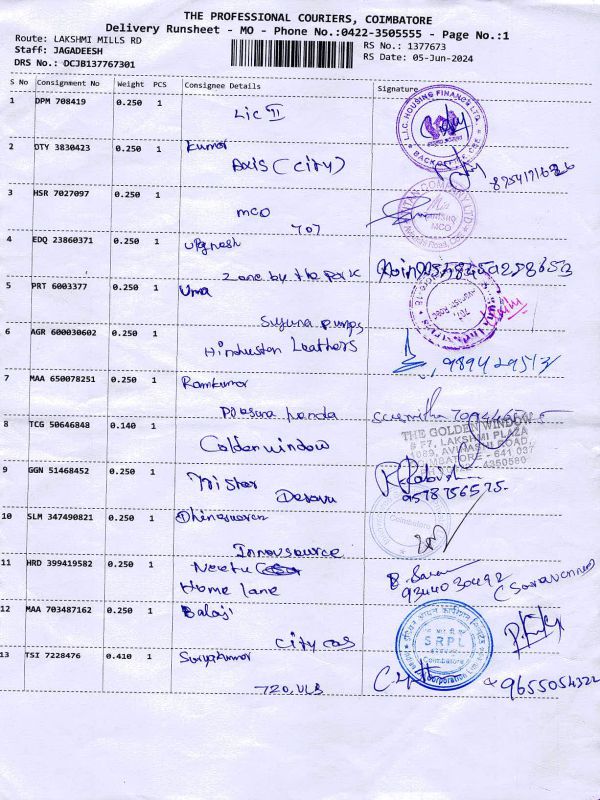 THE PROFESSIONAL COURIERS, COIMBATORE
Delivery Runsheet - MO - Phone No.:0422-3505555 - Page No.:1
Route: LAKSHMI MILLS RD
Staff: JAGADEESH
DRS No.: DCJB137767301
RS No.: 1377673
RS Date: 05-Jun-2024
S No Consignment No Weight PCS Consignee Details Signature
1 DPM 708419 0.250 1
LIC II
L.I.C. HOUSING FINANCE LTD
BACK OFFICE CBE
2 OTY 3830423 0.250 1 Kumar
Axis (City)
3 HSR 7027097 0.250 1
MCO
707
MCO
4 EDQ 23860371 0.250 1
Zone by the Park
5 PRT 6003377 0.250 1 Uma
Suguna Pumps
6 AGR 600030602 0.250 1 Hindustan Leathers
7 MAA 650078251 0.250 1 Ramkumar
8 TCG 50646848 0.140 1
Golden window
THE GOLDEN WINDOW
# F7, LAKSHMI PLAZA
1089, AVINASHI ROAD,
COIMBATORE - 641 037
4350580
9 GGN 51468452 0.250 1
9578756575
10 SLM 347490821 0.250 1
Innovsource
Coimbatore
11 HRD 399419582 0.250 1 Neetu
Home lane
9344030492
(Saravanan)
12 MAA 703487162 0.250 1 Balaji
City cos
SRPL
Coimbatore
Corporation
13 TSI 7228476 0.410 1 Suryakumar
720, VLB